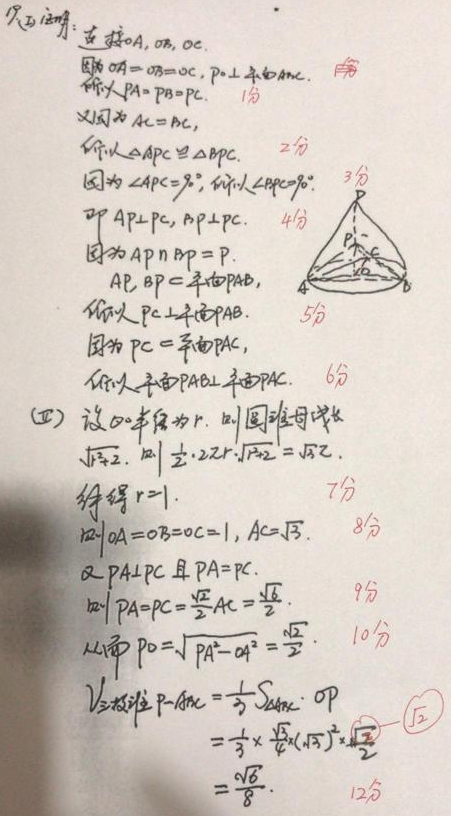 (Ⅰ)证明:
连接OA, OB, OC.
因为OA=OB=OC, PO⊥平面ABC.
所以PA=PB=PC. 1分
又因为AC=BC,
所以△APC≌△BPC. 2分
因为∠APC=90°, 所以∠BPC=90°. 3分
即AP⊥PC, BP⊥PC. 4分
因为AP∩BP=P.
AP, BP⊂平面PAB,
所以PC⊥平面PAB. 5分
因为PC⊂平面PAC,
所以平面PAB⊥平面PAC. 6分
D
P
C
A
O
B
(Ⅱ) 设⊙O半径为r. 则圆锥母线长
√r²+2. 则 1/2·2πr·√r²+2=√3π.
解得r=1. 7分
则OA=OB=OC=1, AC=√3. 8分
又PA⊥PC且PA=PC.
则PA=PC=√2/2 AC=√6/2. 9分
从而PO=√PA²-OA²=√2/2. 10分
V三棱锥P-ABC=1/3 S△ABC·OP
=1/3×√3/4×(√3)²×√2/2
√2
=√6/8. 12分